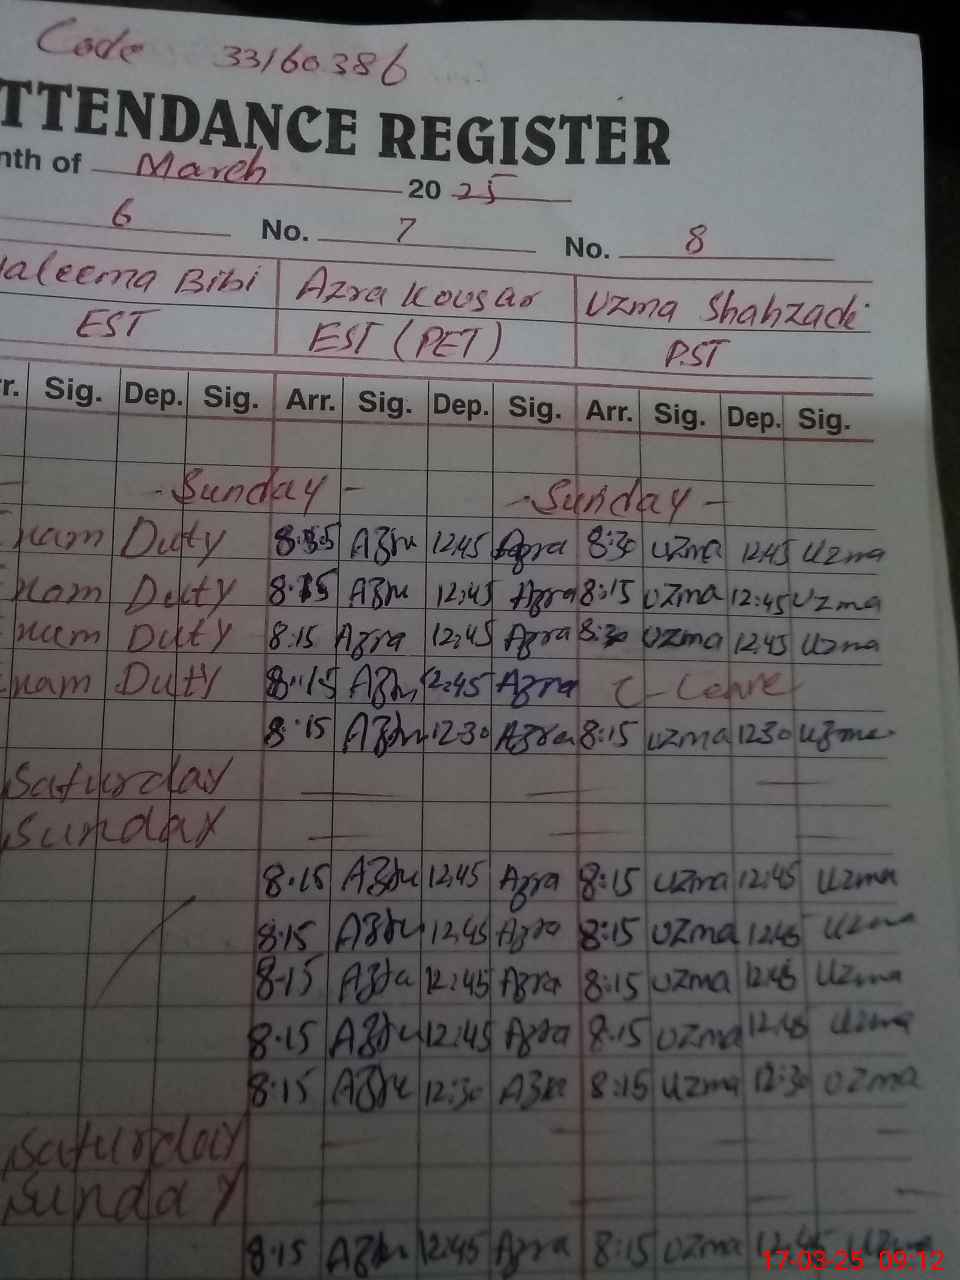 Code 33160386
TTENDANCE REGISTER
nth of March 2025
6 No. 7 No. 8
aleema Bibi Azra Kousar Uzma Shahzadi
EST EST (PET) P.ST
r. Sig. Dep. Sig. Arr. Sig. Dep. Sig. Arr. Sig. Dep. Sig.
- Sunday - - Sunday -
xam Duty Azra 12:45 Azra 8:30 Uzma 12:45 Uzma
xam Duty 8:15 Azra 12:45 Azra 8:15 Uzma 12:45 Uzma
xam Duty 8:15 Azra 12:45 Azra 8:30 Uzma 12:45 Uzma
xam Duty 8:15 Azra 12:45 Azra C-Leave
8:15 Azra 12:30 Azra 8:15 Uzma 12:30 Uzma
Saturday
Sunday
8:15 Azra 12:45 Azra 8:15 Uzma 12:45 Uzma
8:15 Azra 12:45 Azra 8:15 Uzma 12:45 Uzma
8:15 Azra 12:45 Azra 8:15 Uzma 12:45 Uzma
8:15 Azra 12:45 Azra 8:15 Uzma 12:45 Uzma
8:15 Azra 12:30 Azra 8:15 Uzma 12:30 Uzma
Saturday
Sunday
8:15 Azra 12:45 Azra 8:15 Uzma 12:45 Uzma
17-03-25 09:12